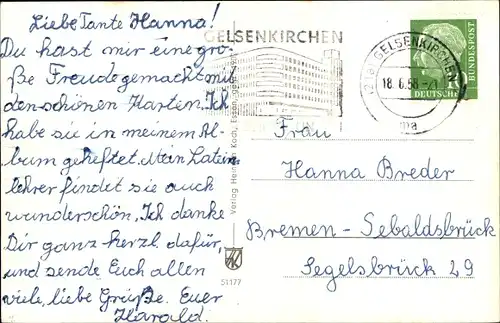 Liebe Tante Hanna!
Du hast mir eine gro-
ße Freude gemacht mit
den schönen Karten. Ich
habe sie in meinem Al-
bum geheftet. Mein Latein-
lehrer findet sie auch
wunderschön. Ich danke
Dir ganz herzl. dafür,
und sende Euch allen
viele, liebe Grüße. Euer
Harald.
GELSENKIRCHEN
GELSENKIRCHEN
18.6.58
ma
DEUTSCHE
BUNDESPOST
Verlag Heinrich Koch, Essen
51177
Frau
Hanna Breder
Bremen-Sebaldsbrück
Segelsbrück 29